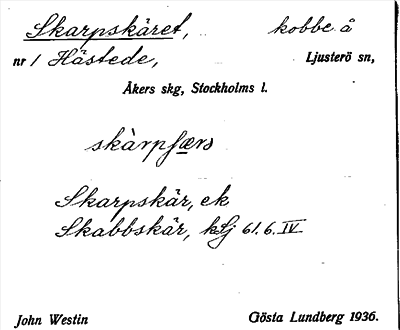 Skarpskäret, kobbe å
nr 1 Hästede, Ljusterö sn,
Åkers skg, Stockholms l.
Skarpskär, ek
Skabbskär, 61.6. IV
John Westin Gösta Lundberg 1936.